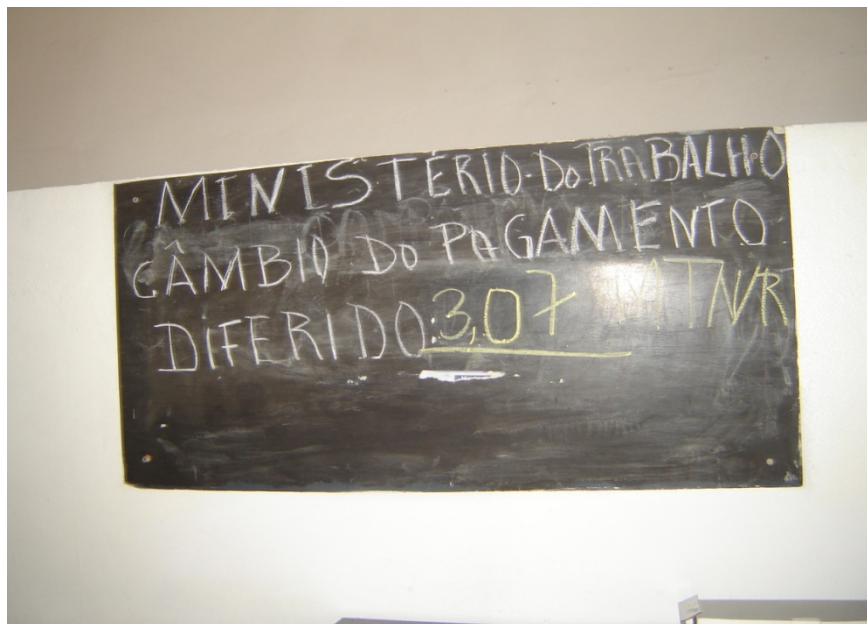 MINISTÉRIO DO TRABALHO
CÂMBIO DO PAGAMENTO
DIFERIDO: 3,07 MTN/R